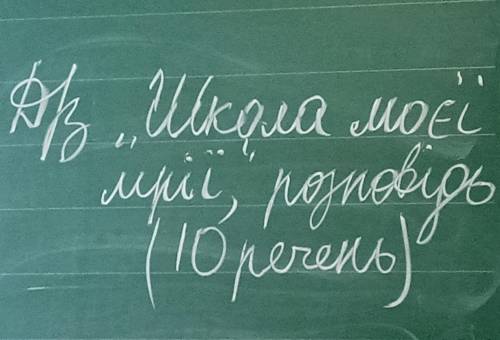 Д/з „Школа моєї
мрії”, розповідь
(10 речень)